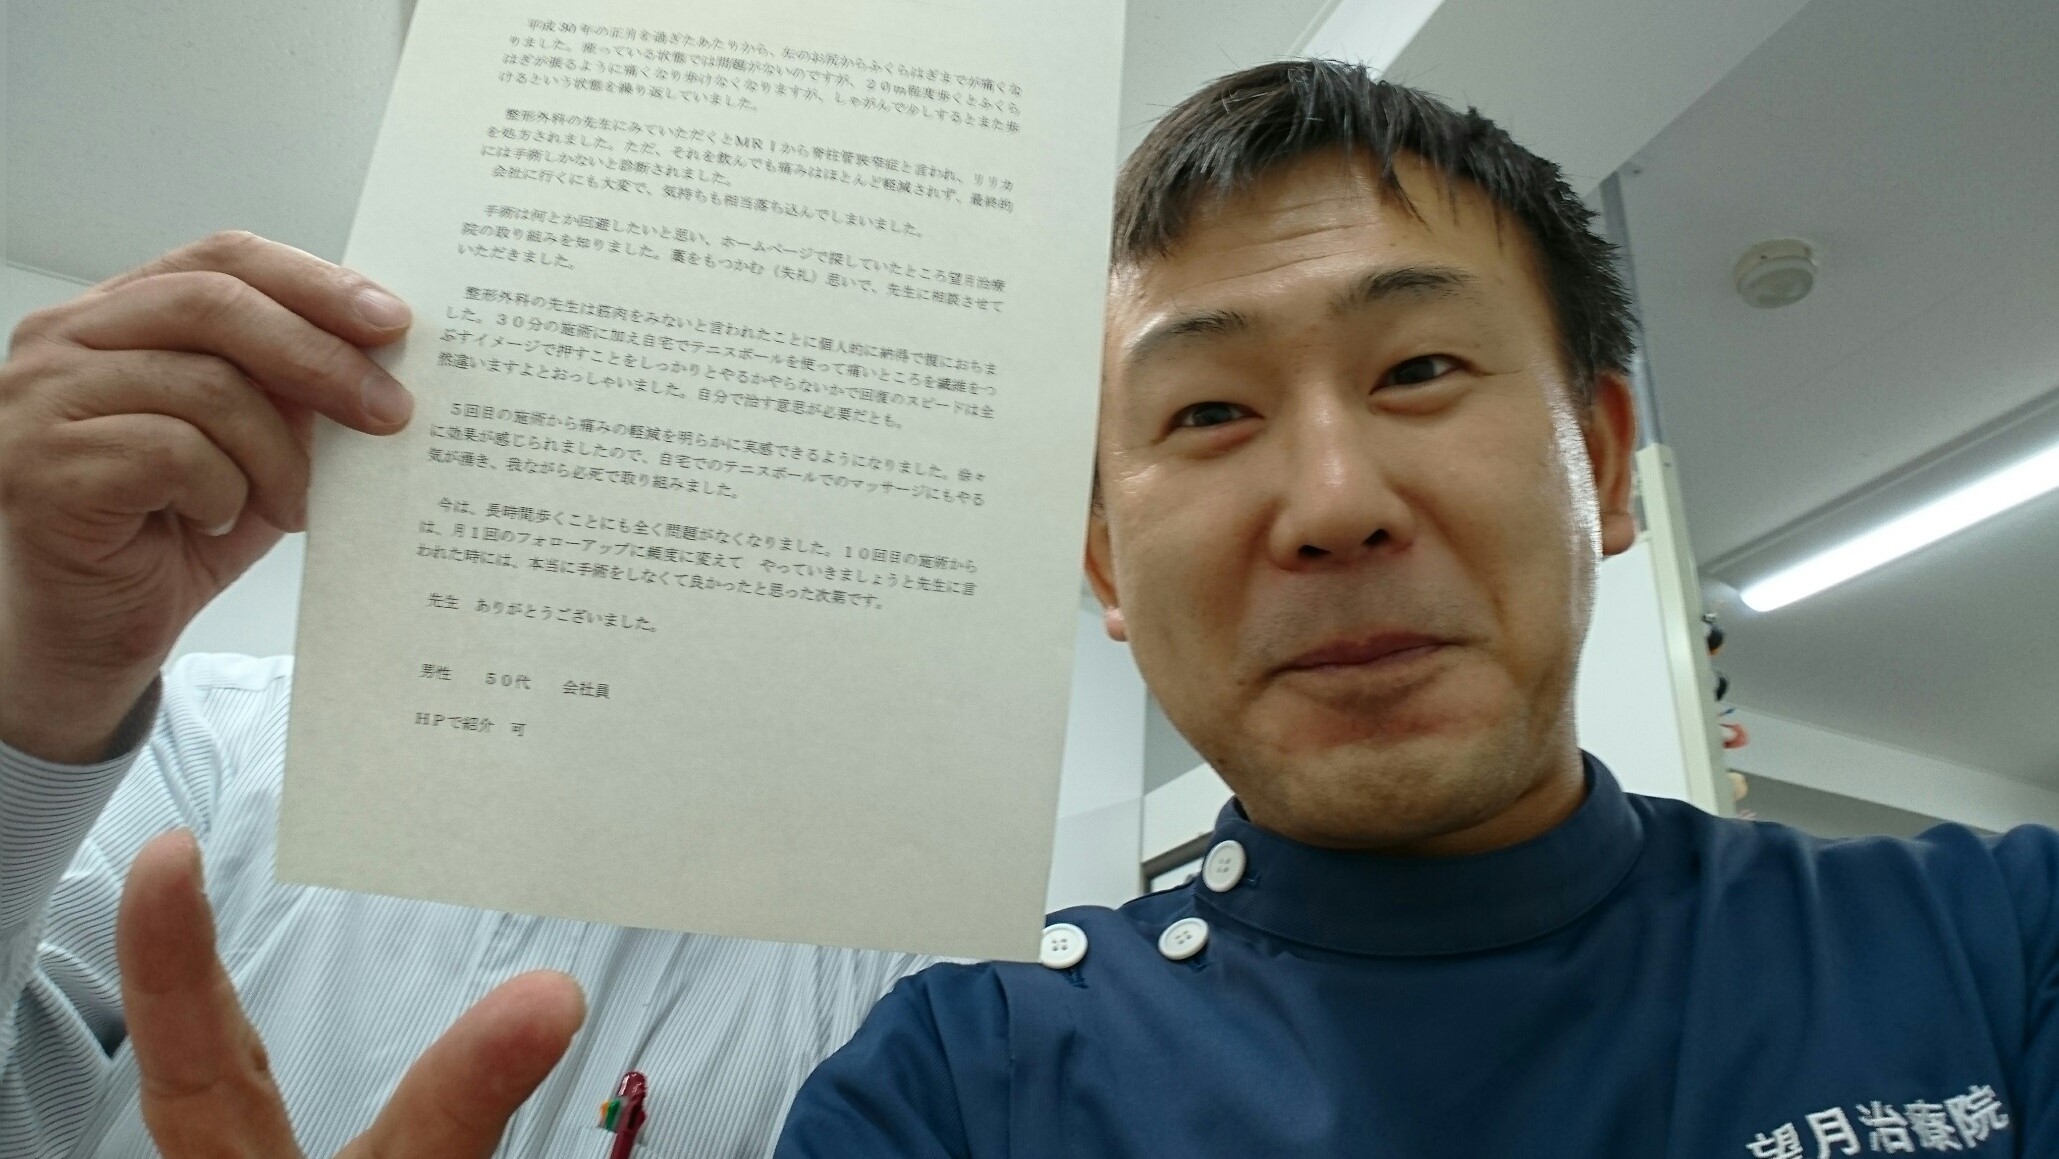 平成30年の正月を過ぎたあたりから、左のお尻からふくらはぎまでが痛くな
りました。座っている状態では問題がないのですが、20m程度歩くとふくら
はぎが張るように痛くなり歩けなくなりますが、しゃがんで少しするとまた歩
けるという状態を繰り返していました。
整形外科の先生にみていただくとMRIから脊柱管狭窄症と言われ、リリカ
を処方されました。ただ、それを飲んでも痛みはほとんど軽減されず、最終的
には手術しかないと診断されました。
会社に行くにも大変で、気持ちも相当落ち込んでしまいました。
手術は何とか回避したいと思い、ホームページで探していたところ望月治療
院の取り組みを知りました。藁をもつかむ（失礼）思いで、先生に相談させて
いただきました。
整形外科の先生は筋肉をみないと言われたことに個人的に納得で腹におちま
した。30分の施術に加え自宅でテニスボールを使って痛いところを繊維をつ
ぶすイメージで押すことをしっかりとやるかやらないかで回復のスピードは全
然違いますよとおっしゃいました。自分で治す意思が必要だとも。
5回目の施術から痛みの軽減を明らかに実感できるようになりました。徐々
に効果が感じられましたので、自宅でのテニスボールでのマッサージにもやる
気が湧き、我ながら必死で取り組みました。
今は、長時間歩くことにも全く問題がなくなりました。10回目の施術から
は、月1回のフォローアップに頻度に変えて　やっていきましょうと先生に言
われた時には、本当に手術をしなくて良かったと思った次第です。
先生　ありがとうございました。
男性　50代　会社員
HPで紹介　可
望月治療院